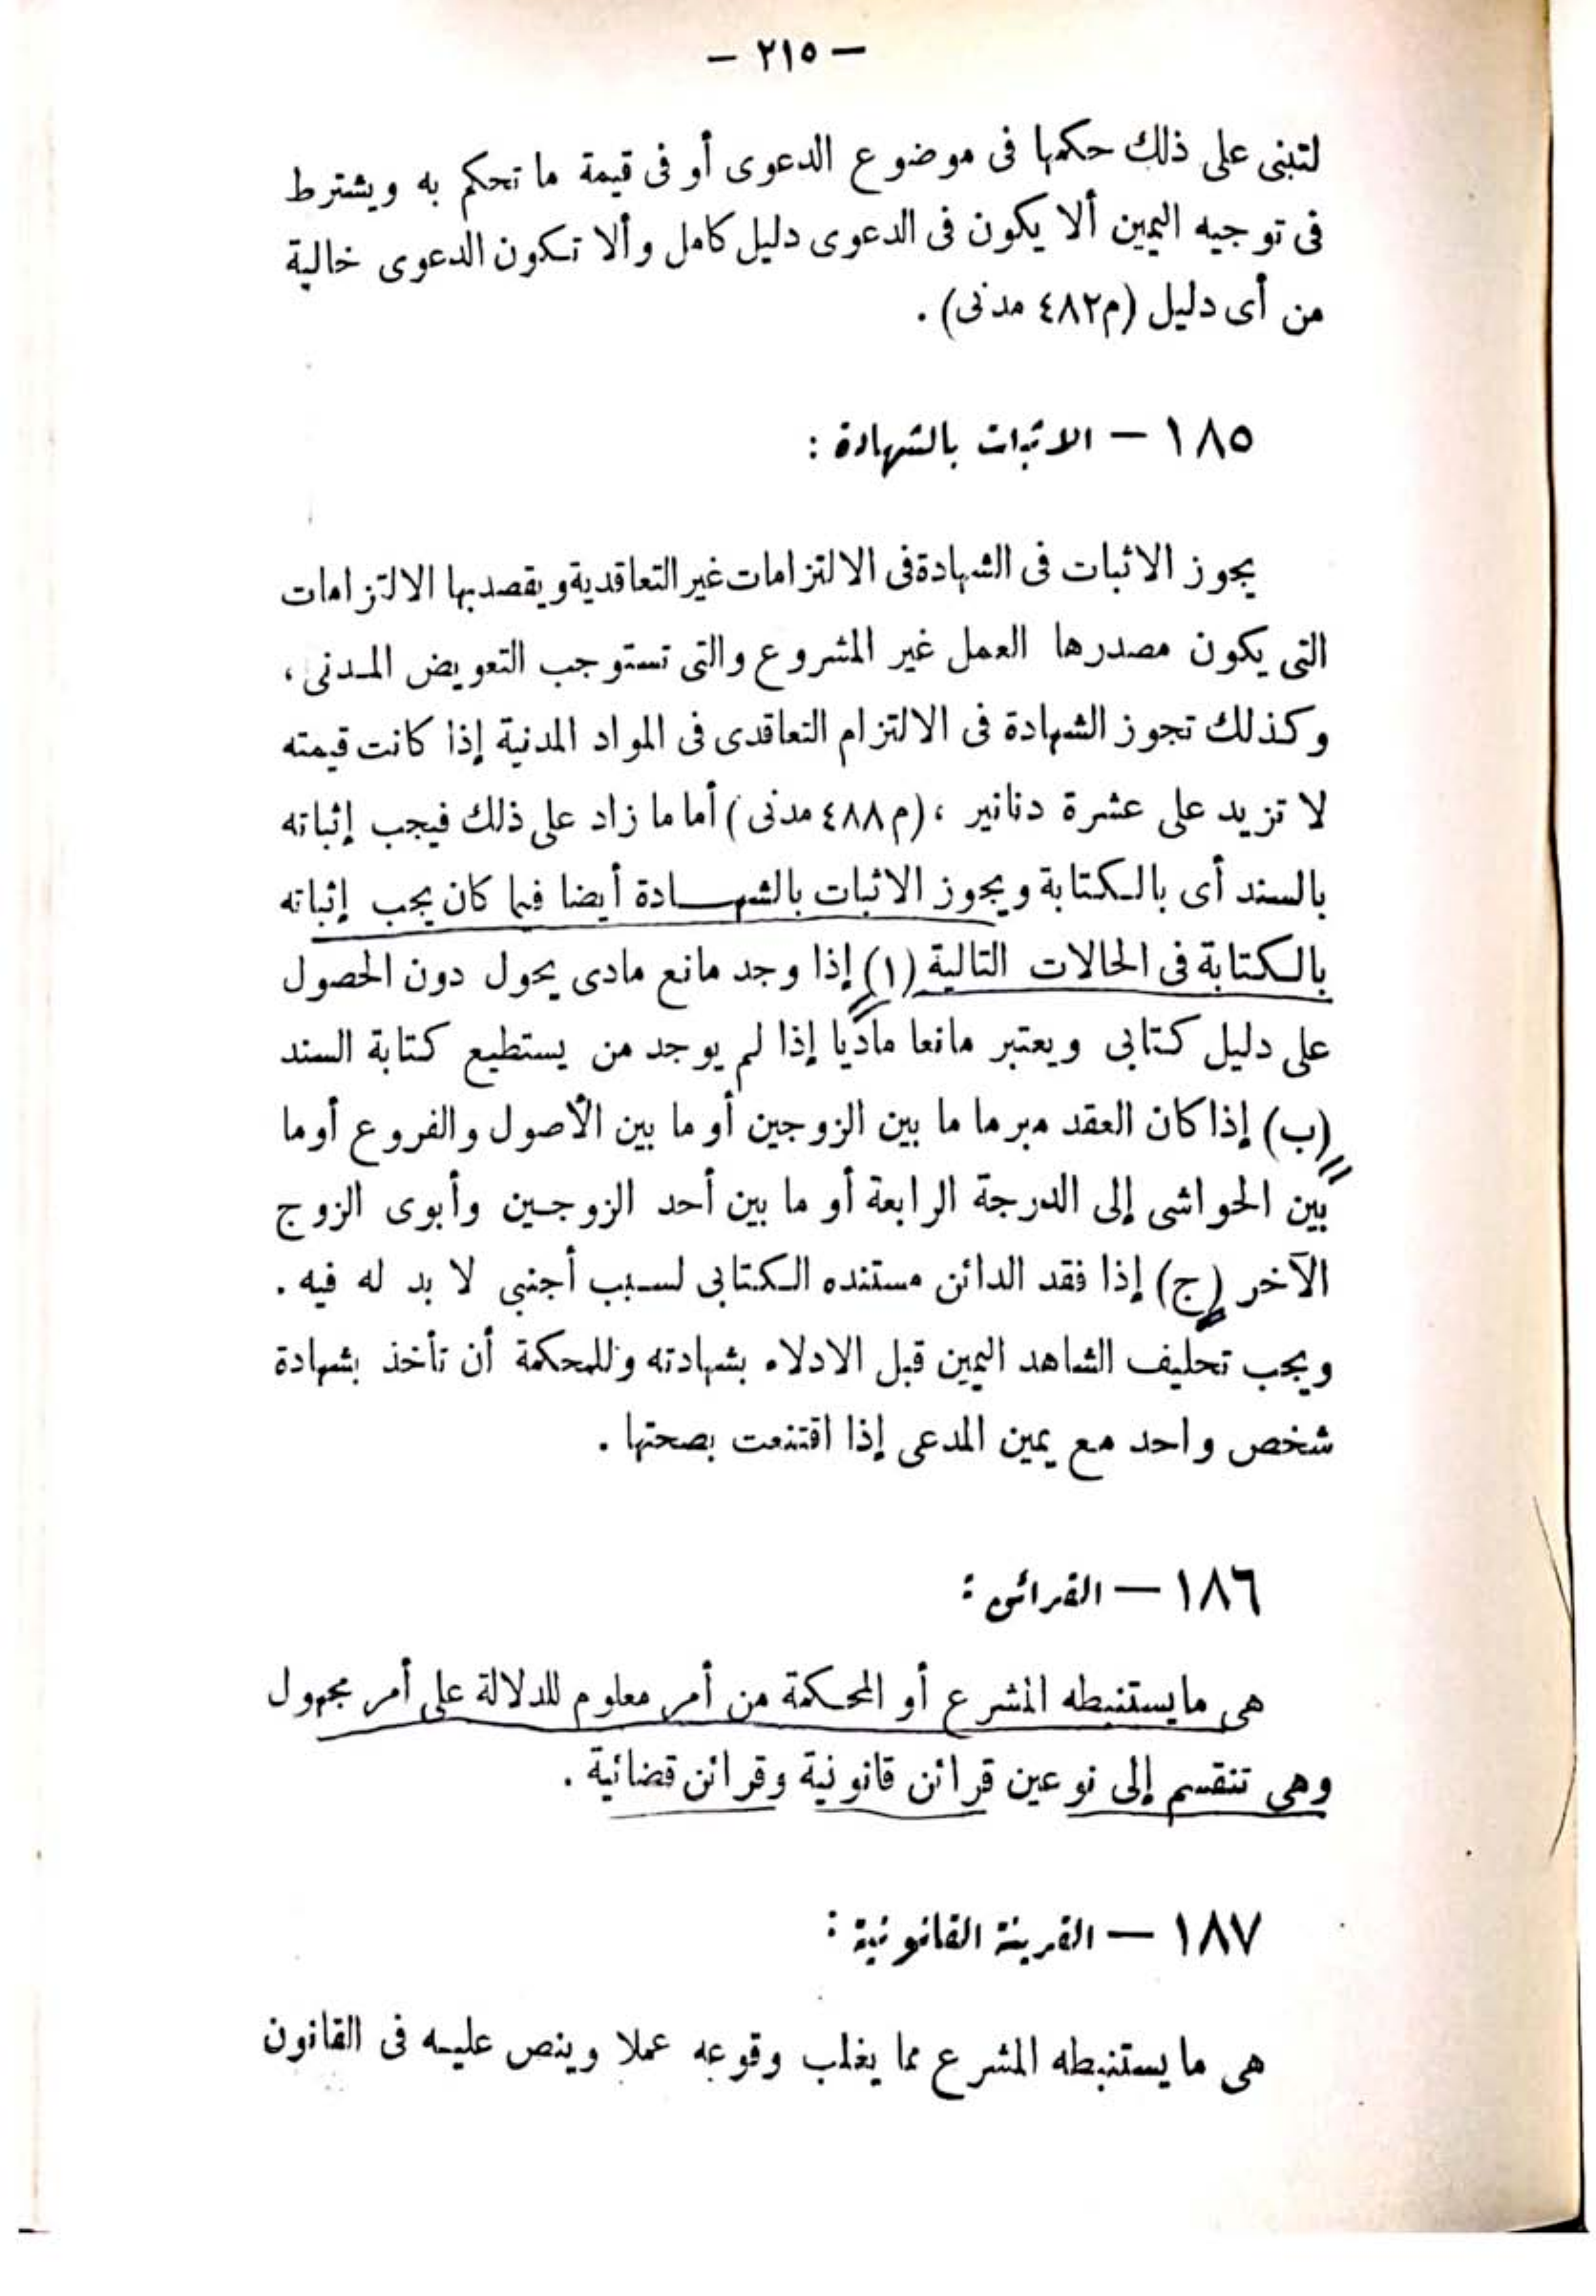 — ٢١٥ —
لتبنى على ذلك حكمها فى موضوع الدعوى أو فى قيمة ما تحكم به ويشترط
فى توجيه اليمين ألا يكون فى الدعوى دليل كامل وألا تكون الدعوى خالية
من أى دليل (م٤٨٢ مدنى) .
١٨٥ — الاثبات بالشهادة :
يجوز الاثبات فى الشهادة فى الالتزامات غير التعاقدية ويقصد بها الالتزامات
التى يكون مصدرها العمل غير المشروع والتى تستوجب التعويض المدنى ،
وكذلك تجوز الشهادة فى الالتزام التعاقدى فى المواد المدنية إذا كانت قيمته
لا تزيد على عشرة دنانير ، (م ٤٨٨ مدنى) أما ما زاد على ذلك فيجب إثباته
بالسند أى بالكتابة ويجوز الاثبات بالشهادة أيضا فيما كان يجب إثباته
بالكتابة فى الحالات التالية (١) إذا وجد مانع مادى يحول دون الحصول
على دليل كتابى ويعتبر مانعا ماديا إذا لم يوجد من يستطيع كتابة السند
(ب) إذا كان العقد مبرما ما بين الزوجين أو ما بين الأصول والفروع أوما
بين الحواشى إلى الدرجة الرابعة أو ما بين أحد الزوجين وأبوى الزوج
الآخر (ج) إذا فقد الدائن مستنده الكتابى لسبب أجنبى لا بد له فيه .
ويجب تحليف الشاهد اليمين قبل الادلاء بشهادته وللمحكمة أن تأخذ بشهادة
شخص واحد مع يمين المدعى إذا اقتنعت بصحتها .
١٨٦ — القرائن :
هى ما يستنبطه المشرع أو المحكمة من أمر معلوم للدلالة على أمر مجهول
وهى تنقسم إلى نوعين قرائن قانونية وقرائن قضائية .
١٨٧ — القرينة القانونية :
هى ما يستنبطه المشرع مما يغلب وقوعه عملا وينص عليه فى القانون